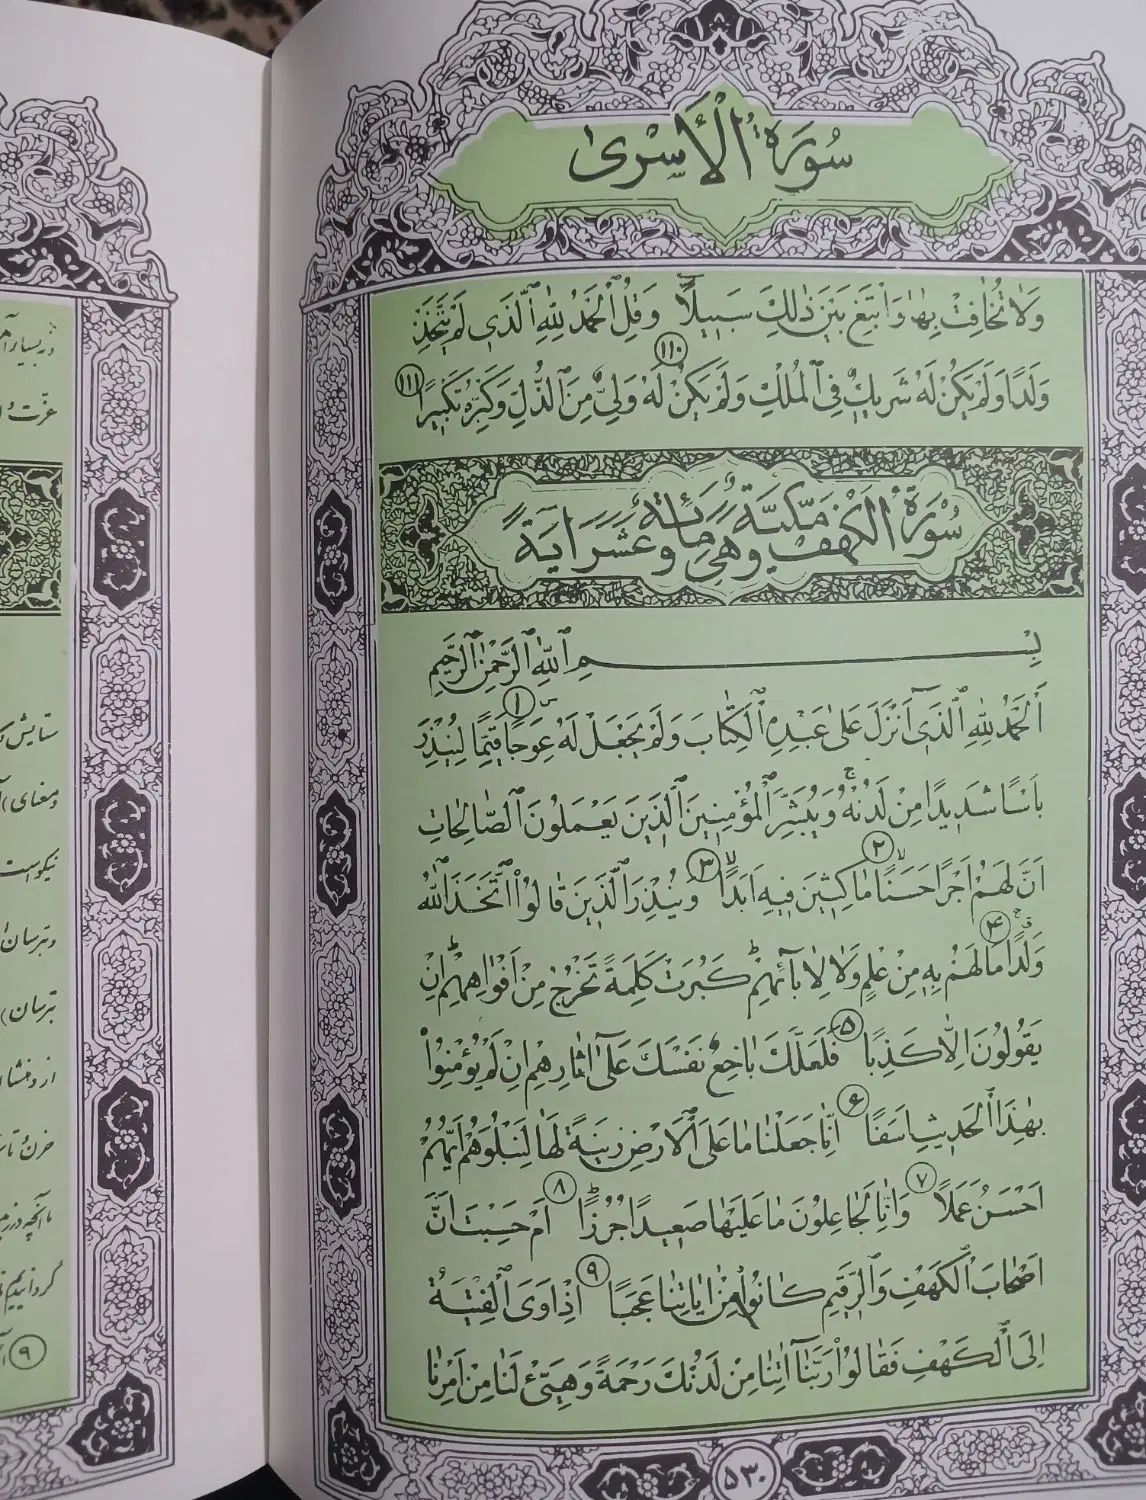 سُورَةُ الْأَسْرىٰ
وَلٰا تُخٰافِتْ بِهٰا وَابْتَغِ بَيْنَ ذٰلِكَ سَبِيلًا ١١٠ وَقُلِ الْحَمْدُ لِلّٰهِ الَّذِي لَمْ يَتَّخِذْ
وَلَدًا وَلَمْ يَكُنْ لَهُ شَرِيكٌ فِي الْمُلْكِ وَلَمْ يَكُنْ لَهُ وَلِيٌّ مِنَ الذُّلِّ وَكَبِّرْهُ تَكْبِيرًا ١١١
سُورَةُ الْكَهْفِ مَكِّيَّةٌ وَهِيَ مِائَةٌ وَعَشَرَ ايَةً
بِسْمِ اللّٰهِ الرَّحْمٰنِ الرَّحِيمِ
اَلْحَمْدُ لِلّٰهِ الَّذِي اَنْزَلَ عَلىٰ عَبْدِهِ الْكِتٰابَ وَلَمْ يَجْعَلْ لَهُ عِوَجًا ١ قَيِّمًا لِيُنْذِرَ
بَاْسًا شَدِيدًا مِنْ لَدُنْهُ وَيُبَشِّرَ الْمُؤْمِنِينَ الَّذِينَ يَعْمَلُونَ الصّٰالِحٰاتِ
اَنَّ لَهُمْ اَجْرًا حَسَنًا ٢ مٰاكِثِينَ فِيهِ اَبَدًا ٣ وَيُنْذِرَ الَّذِينَ قٰالُوا اتَّخَذَ اللّٰهُ
وَلَدًا ۴ مٰا لَهُمْ بِهِ مِنْ عِلْمٍ وَلٰا لِاٰبٰائِهِمْ كَبُرَتْ كَلِمَةً تَخْرُجُ مِنْ اَفْوٰاهِهِمْ اِنْ
يَقُولُونَ اِلّٰا كَذِبًا ۵ فَلَعَلَّكَ بٰاخِعٌ نَفْسَكَ عَلىٰ اٰثٰارِهِمْ اِنْ لَمْ يُؤْمِنُوا
بِهٰذَا الْحَدِيثِ اَسَفًا ۶ اِنّٰا جَعَلْنٰا مٰا عَلَى الْاَرْضِ زِينَةً لَهٰا لِنَبْلُوَهُمْ اَيُّهُمْ
اَحْسَنُ عَمَلًا ٧ وَاِنّٰا لَجٰاعِلُونَ مٰا عَلَيْهٰا صَعِيدًا جُرُزًا ٨ اَمْ حَسِبْتَ اَنَّ
اَصْحٰابَ الْكَهْفِ وَالرَّقِيمِ كٰانُوا مِنْ اٰيٰاتِنٰا عَجَبًا ٩ اِذْ اَوَى الْفِتْيَةُ
اِلَى الْكَهْفِ فَقٰالُوا رَبَّنٰا اٰتِنٰا مِنْ لَدُنْكَ رَحْمَةً وَهَيِّئْ لَنٰا مِنْ اَمْرِنٰا
۵٣٠
ستایش
نیکوست
وترسان
ترسان)
گردانیدیم
٩